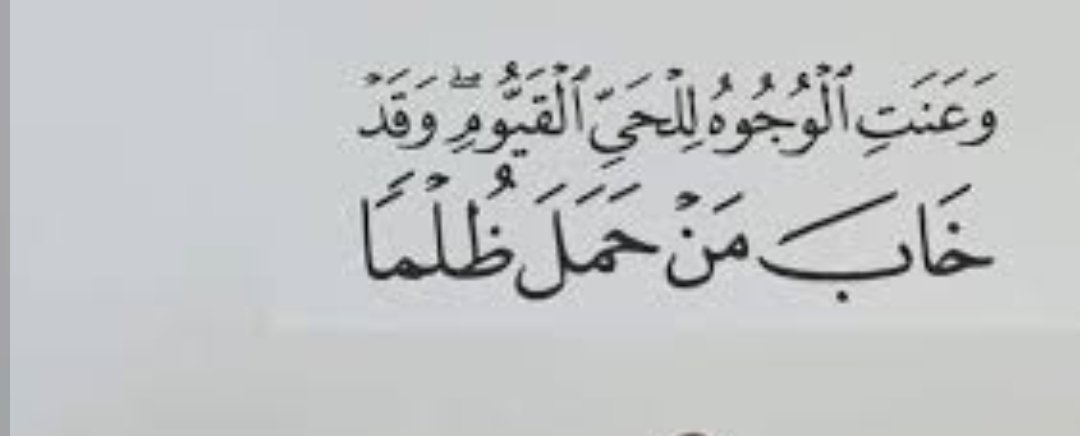 وَعَنَتِ ٱلْوُجُوهُ لِلْحَيِّ ٱلْقَيُّومِ ۖ وَقَدْ
خَابَ مَنْ حَمَلَ ظُلْمًا